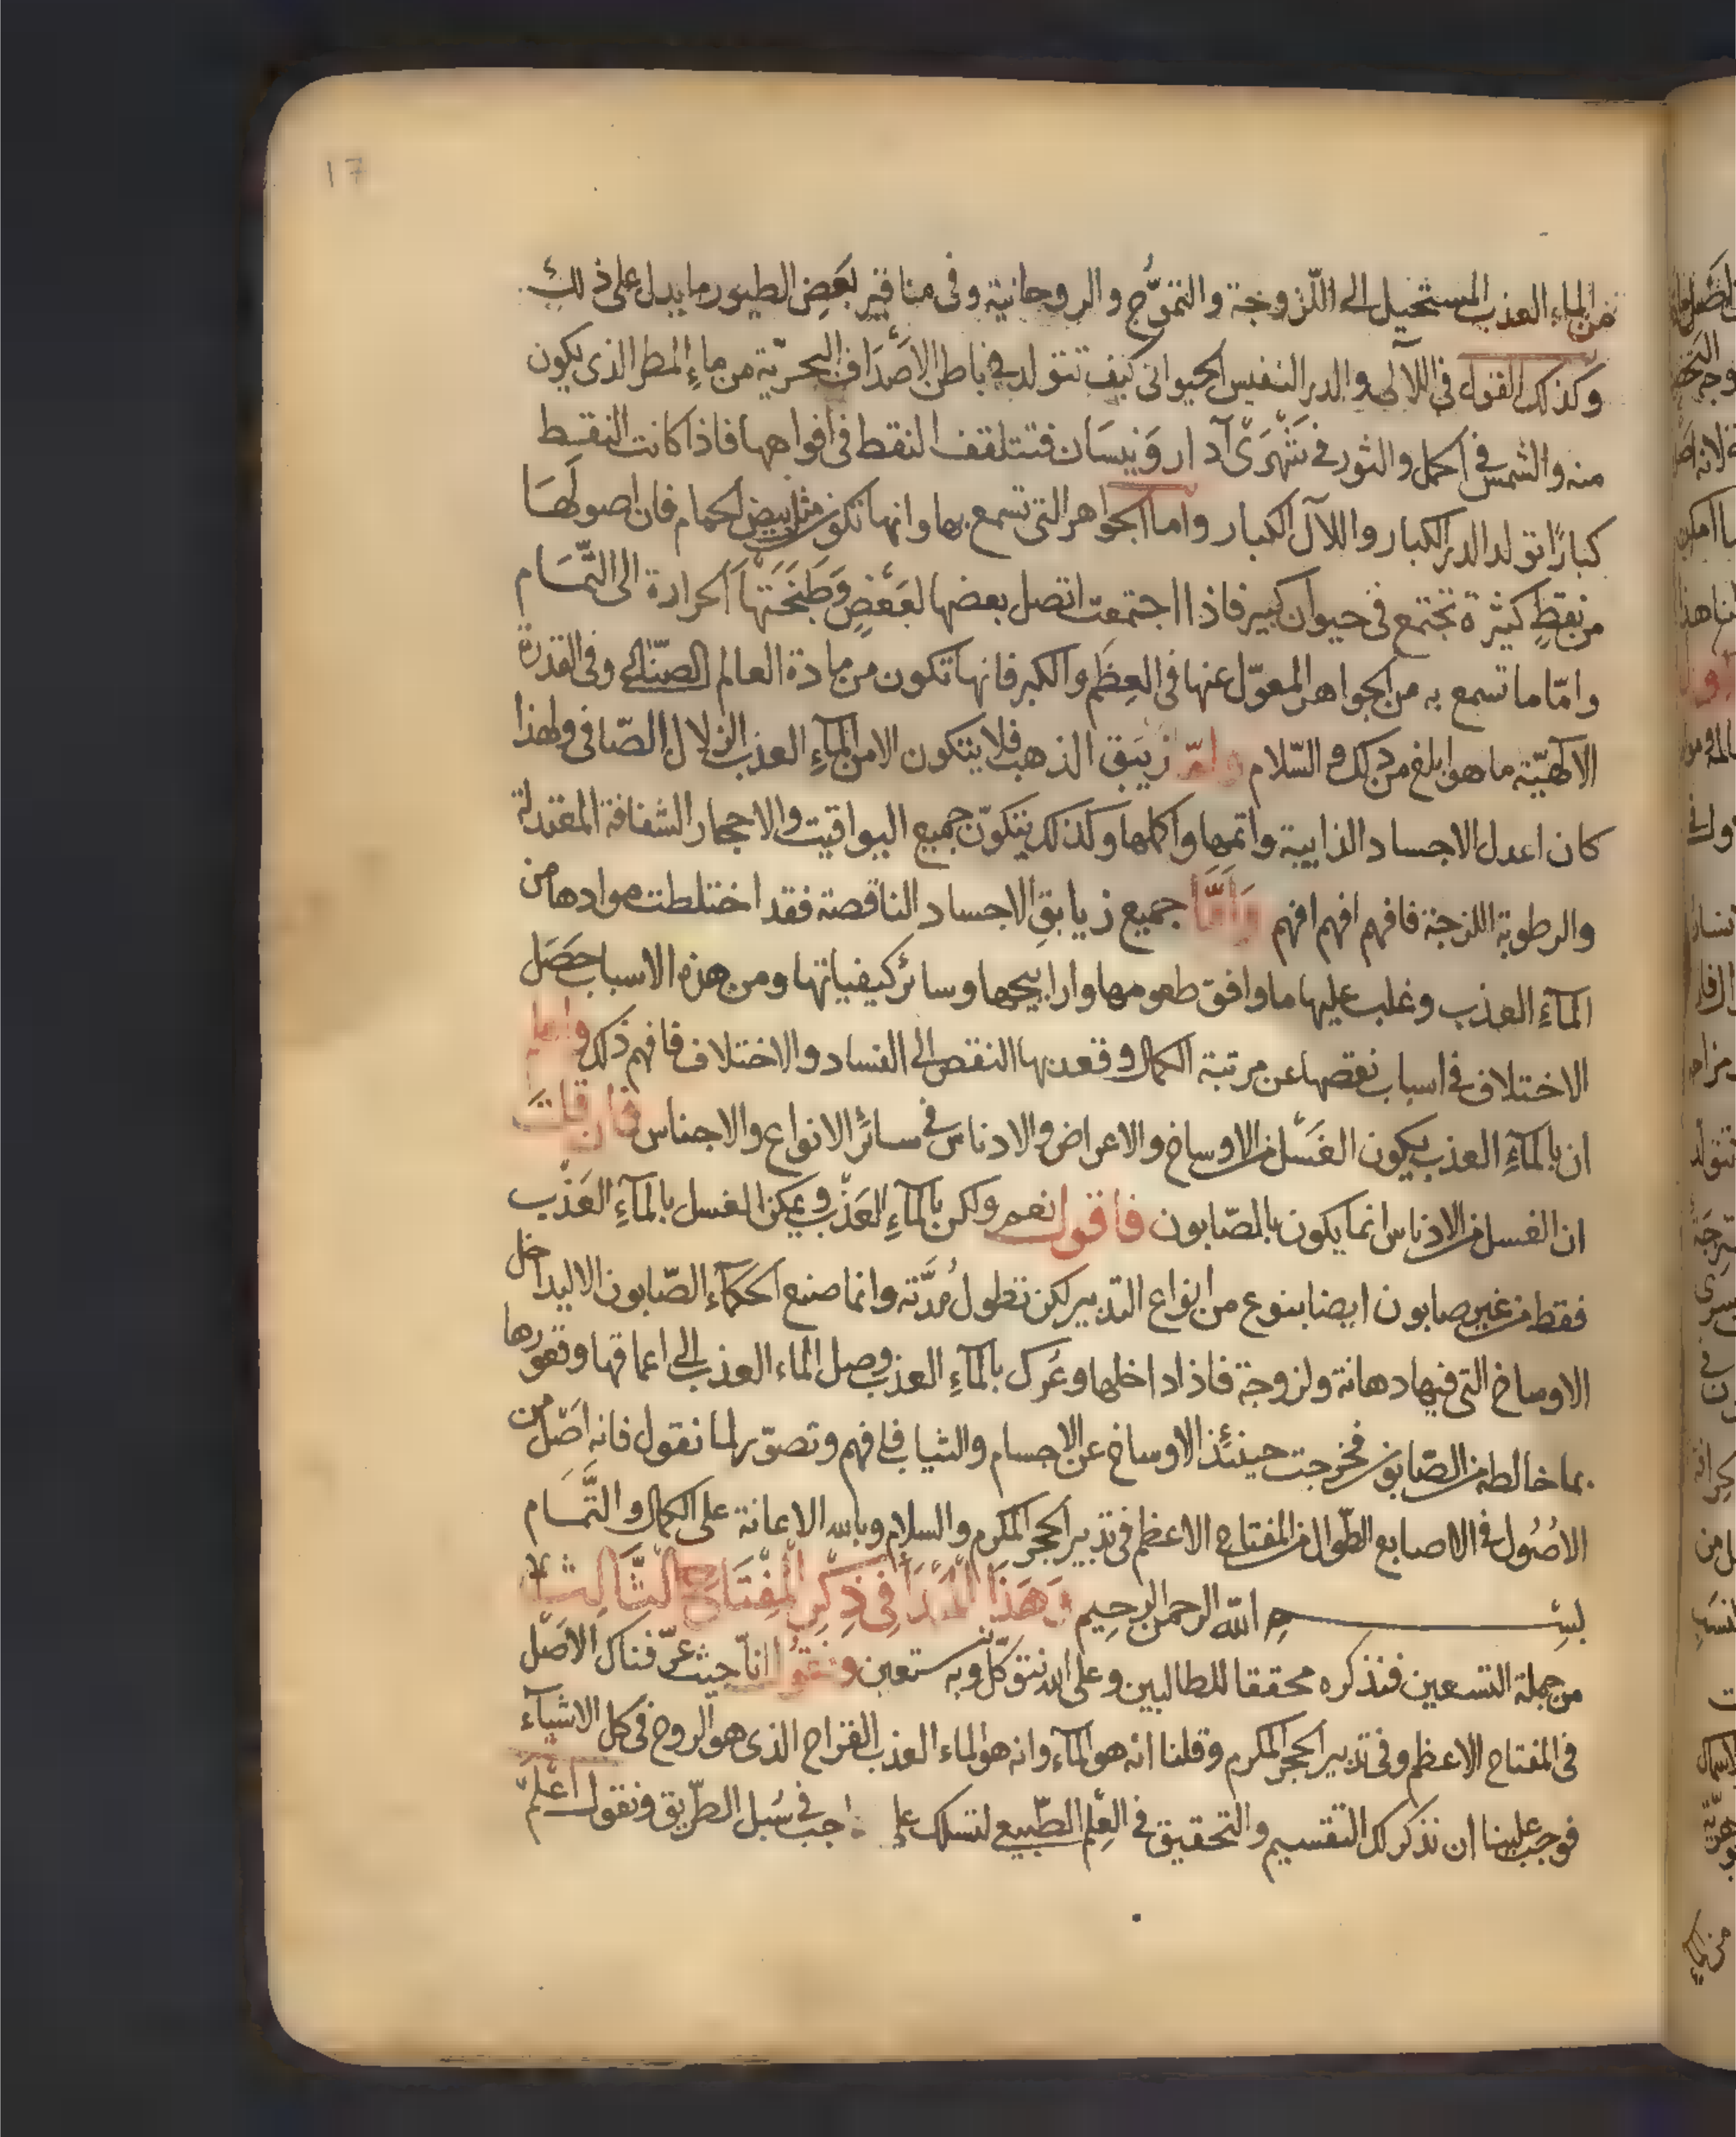 17
من الماء العذب المستحيل الى اللزوجة والتموّج والروحانية وفى مناقير بعض الطيور ما يدل على ذلك
وكذلك القول فى اللآلى والدر النفيس الحيوانى كيف تتولد فى باطن الاصداف البحريّة من ماء المطر الذى يكون
منه والشمس فى الحمل والثور فى شهرى آدار ونيسان فتتلقف النقط فى افواهها فاذا كانت النقط
كبارًا تولد الدر الكبار واللآل الكبار واما الجواهر التى تسمع بها وانها تكون مثل بيض الحمام فان اصولها
من نقطٍ كثيرة تجتمع فى حيوان كبير فاذا اجتمعت اتصل بعضها لبعضٍ وطبختها الحرارة الى التّمام
وامّا ما تسمع به من الجواهر المعوّل عنها فى العِظَم والكبر فانها تكون من مادة العالم الصّناعى وفى القدرة
الآلهيّة ما هو ابلغ من ذلك والسّلام وامّا زيبق الذهب فلا يتكون الا من المآءِ العذب الزلال الصّافى ولهذا
كان اعدل الاجساد الذايبة واتمها واكملها وكذلك يتكوّن جميع اليواقيت والاحجار الشفافة المعتدلة
والرطوبة اللزجة فافهم افهم افهم وَاَمَّا جميع زيابق الاجساد الناقصة فقد اختلطت موادها من
المآءِ العذب وغلب عليها ما وافق طعومها واراييحها وسائر كيفياتها ومن هذه الاسباب حصَل
الاختلاف فى اسباب نقصها عن مرتبة الكمال وقعد بها النقص الى الفساد والاختلاف فافهم ذلك واعلم
ان بالمآءِ العذب يكون الغَسْل من الاوساخ والاعراض والادناس فى سائر الانواع والاجناس فان قلت
ان الغسل من الادناس انما يكون بالصّابون فاقول نعم ولكن بالمآءِ العَذْب ويمكن الغسل بالمآءِ العَذْب
فقط من غير صابون ايضا بنوع من انواع التدبير لكن تطول مُدَّته وانما صنع الحكمآء الصّابون الا ليداخل
الاوساخ التى فيها دهانة ولزوجة فاذا داخلها وعُرك بالمآءِ العذب وصل الماء العذب الى اعماقها وقعورها
بما خالطه من الصّابون فخرجت حينئذ الاوساخ عن الاجسام والثياب فافهم وتصوّر لما نقول فانه اصل من
الاصُول فى الاصابع الطّوال من المفتاح الاعظم فى تدبير الحجر المكرم والسلام وبالله الاعانة على الكمال والتَّمام
بسم الله الرحمن الرحيم وَهَذَا المبدأ فى ذِكْرِ المِفْتَاحِ الثَّالِث
من جملة التسعين فنذكره محققا للطالبين وعلى الله نتوكّل وبه نستعين ونقول انا حيث عرّفناك الاصْل
فى المفتاح الاعظم وفى تدبير الحجر المكرم وقلنا انه هو المآء وانه هو الماء العذب القراح الذى هو الروح فى كل الاشيآء
فوجب علينا ان نذكر لك التقسيم والتحقيق فى العِلم الطّبيعى لتسلك على فى سُبل الطّريق ونقول اعْلم